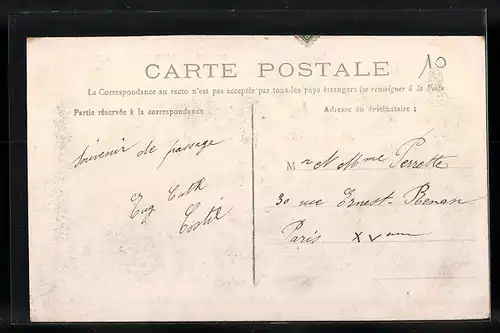 10
CARTE POSTALE
La Correspondance au recto n'est pas acceptée par tous les pays étrangers (se renseigner à la Poste
Partie réservée à la correspondance
Adresse du destinataire :
Souvenir de passage
Eug
Mr et Mme Perrette
30 rue Ernest-Renan
Paris XVème